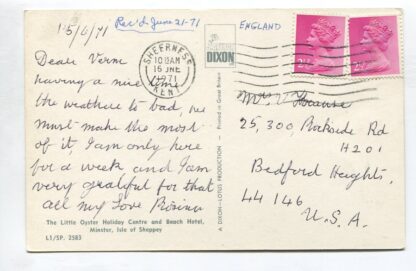 15/6/71
Rec'd June 21-71
ENGLAND
SHEERNESS
10 30 AM
16 JNE
1971
KENT
DIXON
Dear Verna
having a nice time
the weather to bad, we
must make the most
of it, I am only here
for a week and I am
very grateful for that
all my Love Rosina
The Little Oyster Holiday Centre and Beach Hotel,
Minster, Isle of Sheppey
L1/SP. 2583
A DIXON-LOTUS PRODUCTION - Printed in Great Britain
Mrs V Krause
25,300, Rockside Rd
H201
Bedford Heights,
44146
U.S.A.